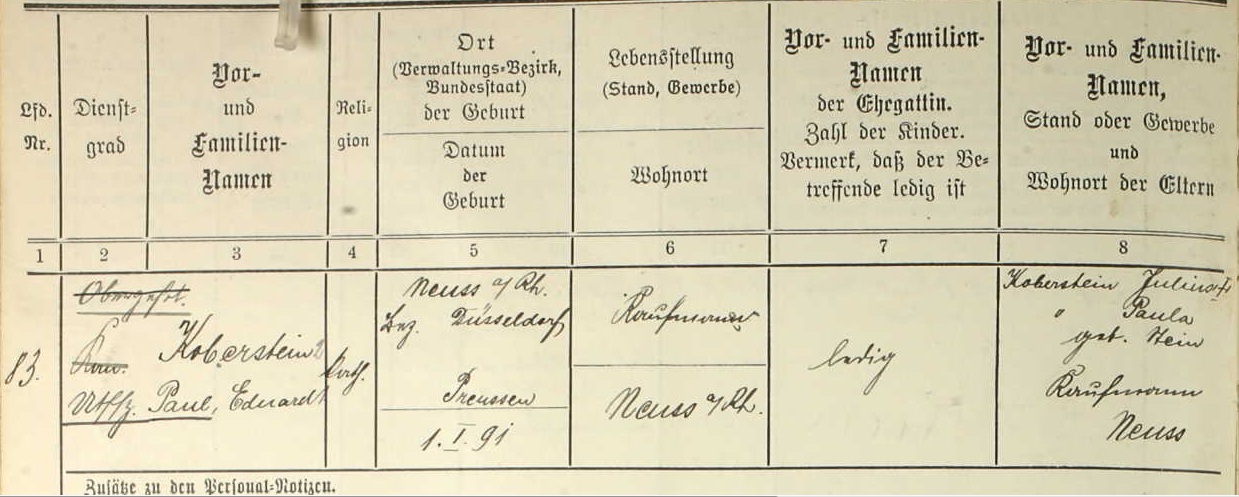 Lfd.
Nr.
Dienst-
grad
Vor-
und
Familien-
Namen
Reli-
gion
Ort
(Verwaltungs-Bezirk,
Bundesstaat)
der Geburt
Datum
der
Geburt
Lebensstellung
(Stand, Gewerbe)
Wohnort
Vor- und Familien-
Namen
der Ehegattin.
Zahl der Kinder.
Vermerk, daß der Be-
treffende ledig ist
Vor- und Familien-
Namen,
Stand oder Gewerbe
und
Wohnort der Eltern
1
2
3
4
5
6
7
8
83.
Obergefrt.
Utffz.
Koberstein
Paul, Eduard
kath.
Neuss a/Rh.
Bez. Düsseldorf
Preussen
1. I. 91
Kaufmann
Neuss a/Rh.
ledig
Koberstein Julius
" Paula
geb. Stein
Kaufmann
Neuss
Zusätze zu den Personal-Notizen.